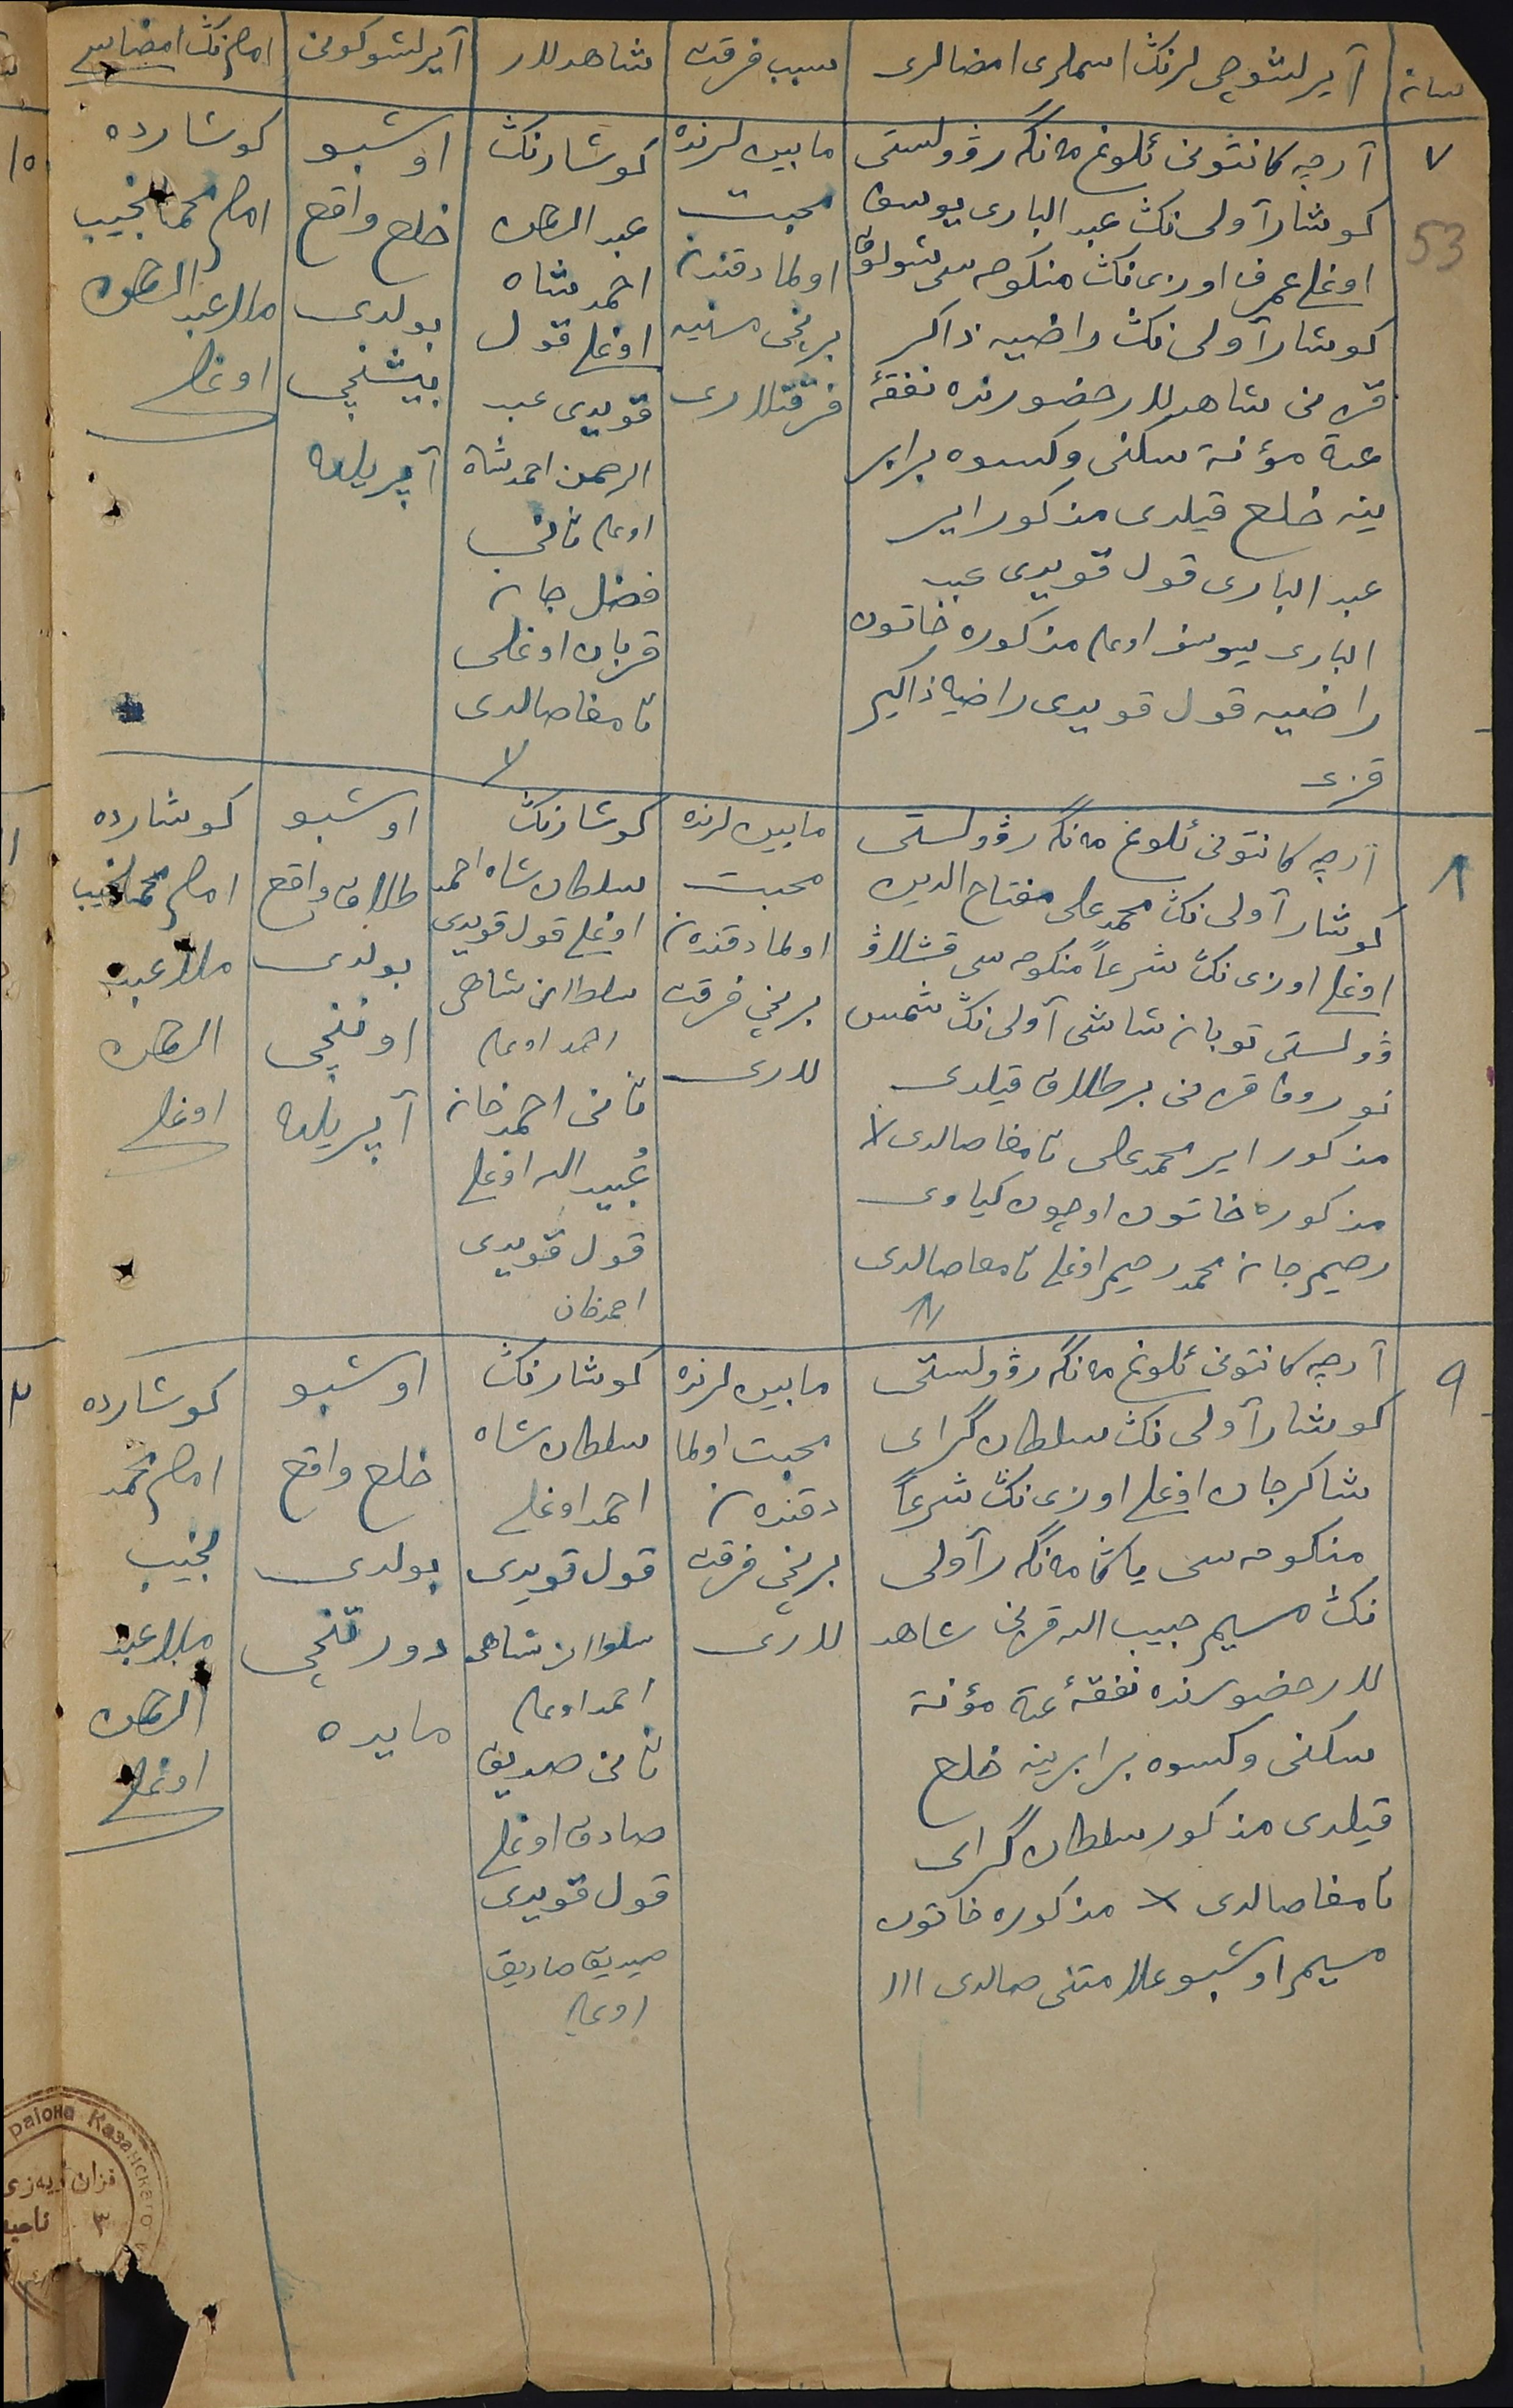 سان
آیرلشوچی لرنڭ اسملری امضالری
سبب فرقت
شاهدلار
آیرلشو کونی
امام نڭ امضاسی
۷
53
آرچه کانتونی ئلوغ مه نگه ر ۋولستی
کوشار آولی نڭ عبد الباری یوسف
اوغلی عمرف اوزی نڭ منکوحه سی شولوق
کوشار آولی نڭ راضیه ذاکر
قزی نی شاهدلار حضورنده نفقهٔ
عدة مؤنة سکنی وکسوه برابر
ینه خلع قیلدی مذکور ایر
عبد الباری قول قویدی عبد
الباری یوسف اوغلی مذکوره خاتون
راضیه قول قویدی راضیه ذاکیر
قزی
مابین لرنده
محبت
اولمادقندن
برنچی مرتبه
فرقتلاری
کوشارنڭ
عبد الرحمن
احمدشاه
اوغلی قول
قویدی عبد
الرحمن احمدشاه
اوغلی ثانی
فضل جان
قربان اوغلی
تامغا صالدی
اوشبو
خلع واقع
بولدی
بیشنچی
آپریلده
کوشارده
امام محمدنجیب
ملا عبد الرحمن
اوغلی
۸
آرچه کانتونی ئلوغ مه نگه ر ۋولستی
کوشار آولی نڭ محمدعلی مفتاح الدین
اوغلی اوزی نڭ شرعاً منکوحه سی قشلاۋ
ۋولستی توبان شاشی آولی نڭ شمس
نوروفا قزی نی بر طلاق قیلدی
مذکور ایر محمدعلی تامغا صالدی X
مذکوره خاتون اوچون کیاوی
رحیم جان محمدرحیم اوغلی تامغا صالدی
مابین لرنده
محبت
اولمادقندن
برنچی فرقت
لاری
کوشارنڭ
سلطان شاه احمد
اوغلی قول قویدی
سلطان شاهی
احمد اوغلی
ثانی احمدخان
عُبید الله اوغلی
قول قویدی
احمدخان
اوشبو
طلاق واقع
بولدی
اوننچی
آپریلده
کوشارده
امام محمدنجیب
ملا عبد
الرحمن
اوغلی
۹
آرچه کانتونی ئلوغ مه نگه ر ۋولستی
کوشار آولی نڭ سلطان گرای
شاکرجان اوغلی اوزی نڭ شرعاً
منکوحه سی یاڭا مه نگه ر آولی
نڭ مسیم حبیب الله قزینی شاهد
لار حضورنده نفقهٔ عدة مؤنة
سکنی وکسوه برابرینه خلع
قیلدی مذکور سلطان گرای
تامغا صالدی X مذکوره خاتون
مسیم اوشبو علامتنی صالدی III
مابین لرنده
محبت اولما
دقندن
برنچی فرقت
لاری
کوشارنڭ
سلطان شاه
احمد اوغلی
قول قویدی
سلطان شاهی
احمد اوغلی
ثانی صدیق
صادق اوغلی
قول قویدی
صیدیق صادیق
اوغلی
اوشبو
خلع واقع
بولدی
دورتنچی
مایده
کوشارده
امام محمد
نجیب
ملا عبد
الرحمن
اوغلی
района Казанскаго
قزان ئویه زی
۳